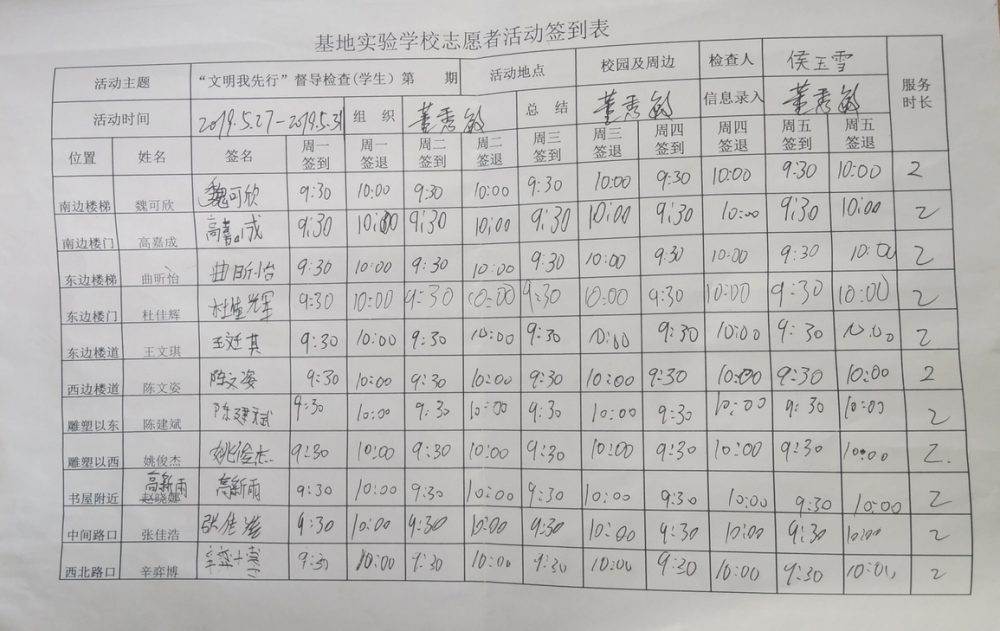 基地实验学校志愿者活动签到表
活动主题 “文明我先行”督导检查(学生) 第 期 活动地点 校园及周边 检查人 侯玉雪 服务时长
活动时间 2019.5.27-2019.5.31 组织 董秀敏 总结 董秀敏 信息录入 董秀敏
位置 姓名 签名 周一签到 周一签退 周二签到 周二签退 周三签到 周三签退 周四签到 周四签退 周五签到 周五签退
南边楼梯 魏可欣 魏可欣 9:30 10:00 9:30 10:00 9:30 10:00 9:30 10:00 9:30 10:00 2
南边楼门 高嘉成 高嘉成 9:30 10:00 9:30 10:00 9:30 10:00 9:30 10:00 9:30 10:00 2
东边楼梯 曲昕怡 曲昕怡 9:30 10:00 9:30 10:00 9:30 10:00 9:30 10:00 9:30 10:00 2
东边楼门 杜佳辉 杜佳辉 9:30 10:00 9:30 10:00 9:30 10:00 9:30 10:00 9:30 10:00 2
东边楼道 王文琪 9:30 10:00 9:30 10:00 9:30 10:00 9:30 10:00 9:30 10:00 2
西边楼道 陈文姿 陈文姿 9:30 10:00 9:30 10:00 9:30 10:00 9:30 10:00 9:30 10:00 2
雕塑以东 陈建斌 陈建斌 9:30 10:00 9:30 10:00 9:30 10:00 9:30 10:00 9:30 10:00 2
雕塑以西 姚俊杰 姚俊杰 9:30 10:00 9:30 10:00 9:30 10:00 9:30 10:00 9:30 10:00 2.
书屋附近 高新雨 赵晓娜 高新雨 9:30 10:00 9:30 10:00 9:30 10:00 9:30 10:00 9:30 10:00 2
中间路口 张佳浩 张佳浩 9:30 10:00 9:30 10:00 9:30 10:00 9:30 10:00 9:30 10:00 2
西北路口 辛弈博 9:30 10:00 9:30 10:00 9:30 10:00 9:30 10:00 9:30 10:00 2